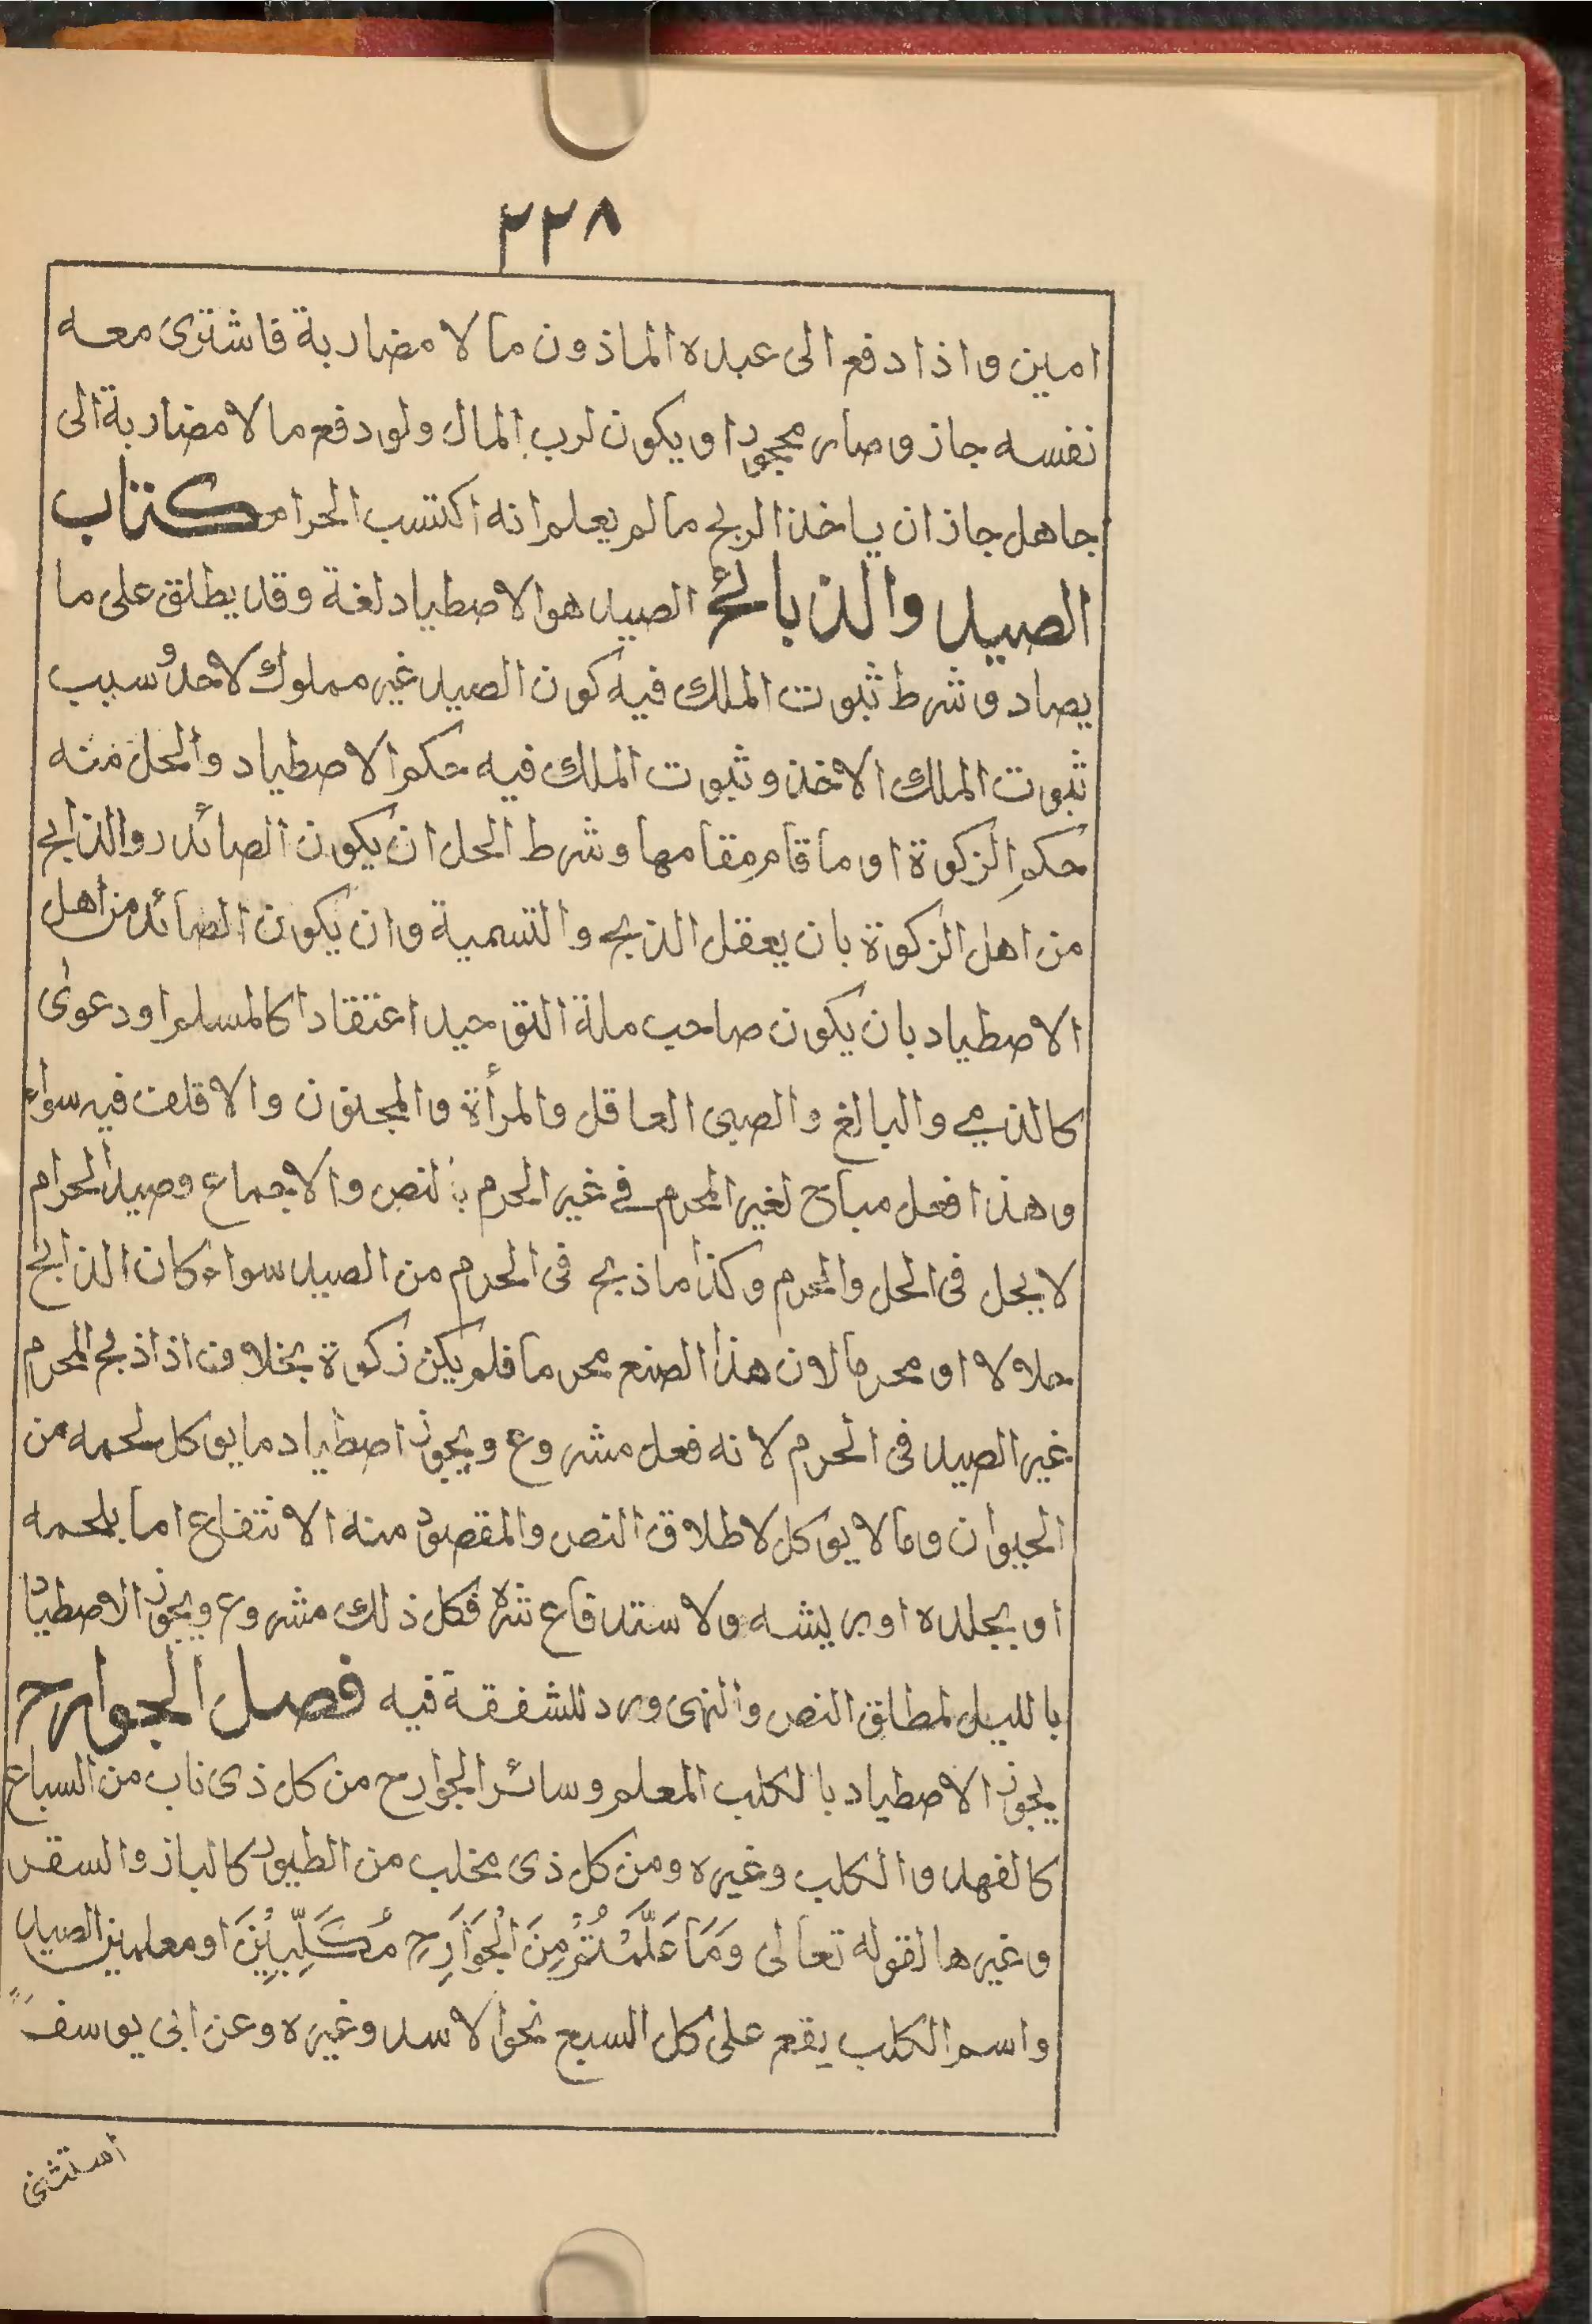 ٢٢٨
امين واذا دفع الى عبده الماذون مالا مضاربة فاشترى معه
نفسه جاز وصار محجورا ويكون لرب المال ولو دفع مالا مضاربة الى
جاهل جاز ان ياخذ الربح مالم يعلم انه اكتسب الحرام كتاب
الصيد والذبائح الصيد هو الاصطياد لغة وقد يطلق على ما
يصاد وشرط ثبوت الملك فيه كون الصيد غير مملوك لاحد وسبب
ثبوت الملك الاخذ وثبوت الملك فيه حكم الاصطياد والحل منه
حكم الزكوة او ما قام مقامها وشرط الحل ان يكون الصائد والذابح
من اهل الزكوة بان يعقل الذبح والتسمية وان يكون الصائد من اهل
الاصطياد بان يكون صاحب ملة التوحيد اعتقادا كالمسلم او دعوى
كالذمي والبالغ والصبى العاقل والمرأة والمجنون والاقلف فيه سواء
وهذا فعل مباح لغير المحرم في غير الحرم بالنص والاجماع وصيد الحرام
لا يحل فى الحل والحرم وكذا ما ذبح فى الحرم من الصيد سواء كان الذابح
حلالا او محرما لان هذا الصنع محرما فلم يكن ذكوة بخلاف اذا ذبح المحرم
غير الصيد فى الحرم لانه فعل مشروع ويجوز اصطياد ما يوكل لحمه من
الحيوان وما لا يوكل لاطلاق النص والمقصود منه الانتفاع اما بلحمه
او بجلده او بريشه ولاستدفاع شره فكل ذلك مشروع ويجوز الاصطياد
بالليل لمطلق النص والنهى ورد للشفقة فيه فصل الجوارح
يجوز الاصطياد بالكلب المعلم وسائر الجوارح من كل ذى ناب من السباع
كالفهد والكلب وغيره ومن كل ذى مخلب من الطيور كالباز والسقر
وغيرها لقوله تعالى وَمَا عَلَّمْتُمْ مِنَ الْجَوَارِحِ مُكَلِّبِيْنَ او معلمين الصيد
واسم الكلب يقع على كل السبع نحو الاسد وغيره وعن ابى يوسف
استثنى